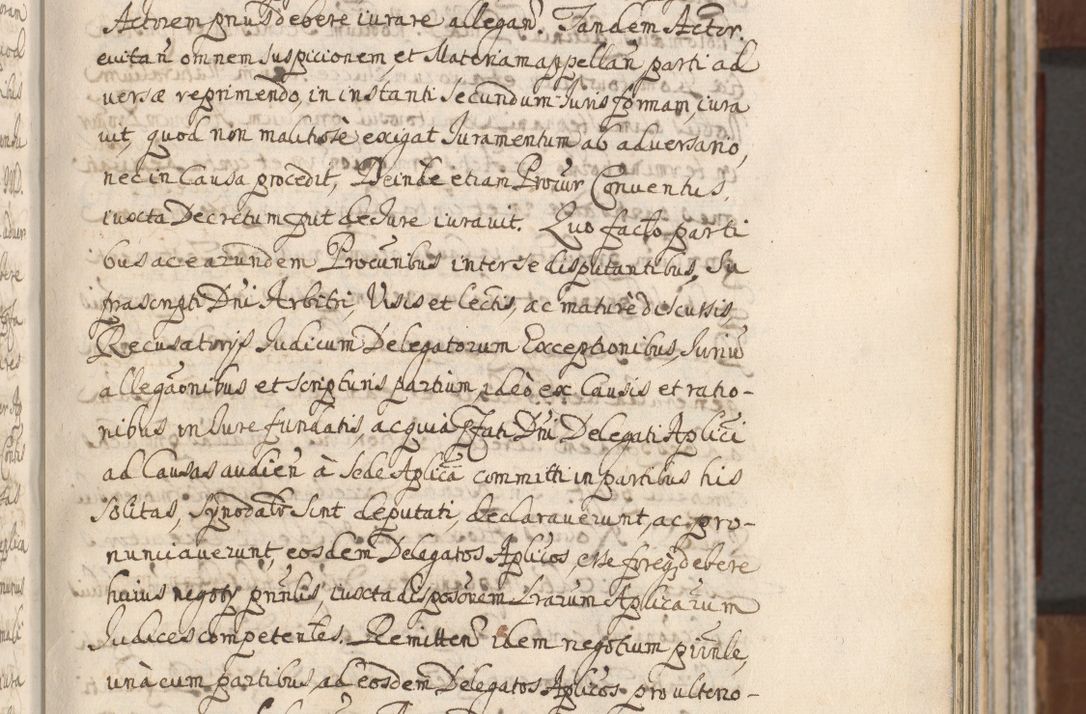 Actorem pñus debere iurare allegañ. Tandem Actor.
euitañ omnem suspicionem et Materiam appellañ parti ad
versæ reprimendo, in instanti secundum Iuris formam, iura
uit, quod non malitiosè exigat Iuramentum ab adversario,
nec in Causa procedit, Deinde etiam Procur Conuentus,
iuxta Decretum put de Iure iurauit. Quo facto parti
bus ac earundem Procuribus inter se disputantibus, Su
prascripti Dñi Arbitri, Visis et lectis, ac maturè discussis,
Recusatorijs Iudicum Delegatorum Exceptionibus, Iuriũ
allegaõnibus et scripturis partium, ideò ex Causis et ratio-
nibus in Iure fundatis, ac quia Pfati Dñi Delegati Aplici
ad Causas audieñ à Sede Aplica committi in partibus his
solitas, synodalr sint deputati, declarauerunt, ac pro-
nunciauerunt, eosdem Delegatos Aplicos esse foreq3 debere
huius negoty pñtis, iuxta dispoõnem Lrarum Aplicarum
Iudices competentes. Remitteñ idem negotium pñtile,
unà cum partibus, ad eosdem Delegatos Aplicos pro ulterio-